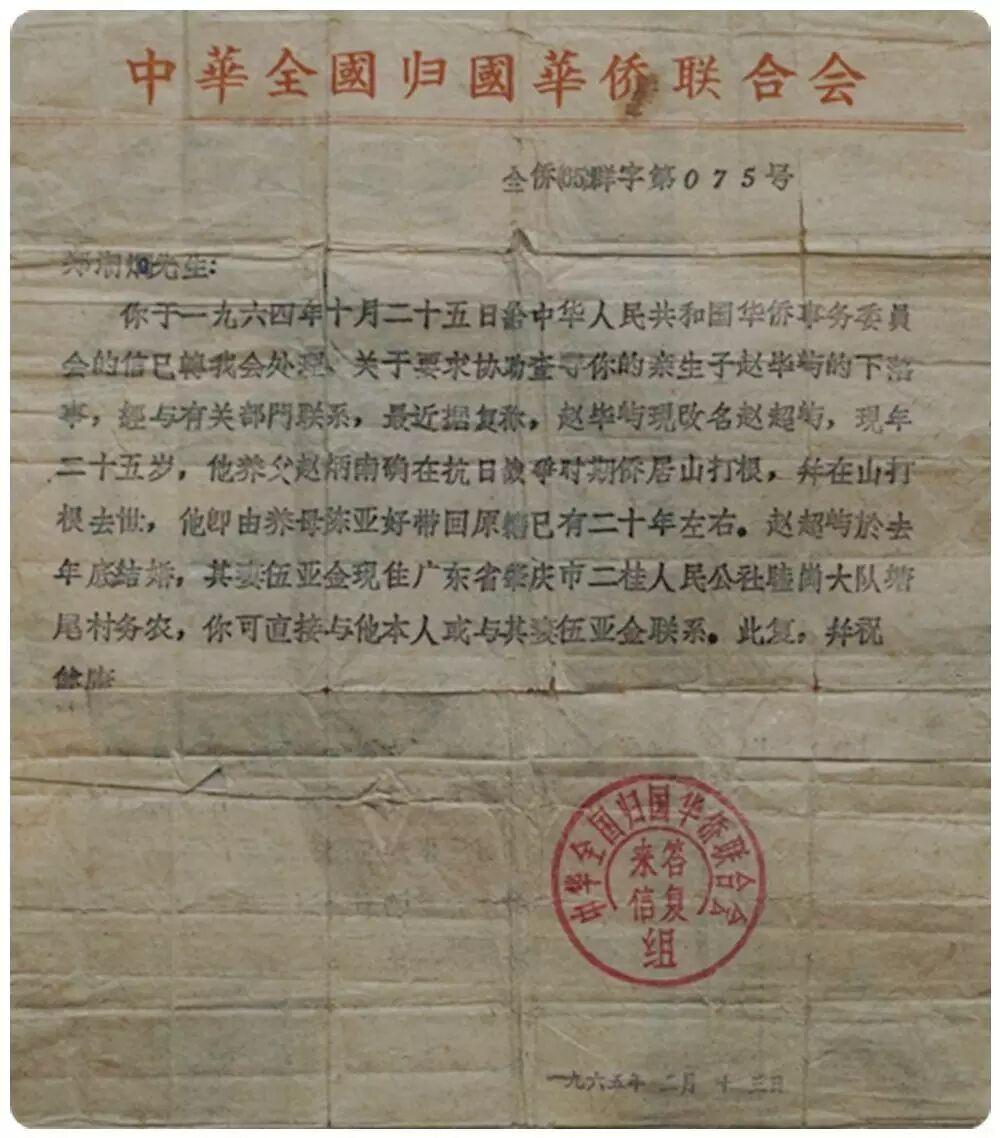 中華全國归國華侨联合会
全侨(65)群字第075号
先生:
你于一九六四年十月二十五日给中华人民共和国华侨事务委員
会的信已轉我会处理、关于要求协助查寻你的亲生子赵毕屿的下落
事，經与有关部門联系，最近据复称，赵毕屿现改名赵超屿，现年
二十五岁，他养父赵炳南确在抗日战爭时期侨居山打根，幷在山打
根去世，他即由养母陈亚好带回原籍已有二十年左右。赵超屿於去
年底结婚，其妻伍亚金现住广东省肇庆市二桂人民公社睦岗大队塘
尾村务农，你可直接与他本人或与其妻伍亚金联系。此复，幷祝
健康
中华全国归国华侨联合会
来信答复组
一九六五年 二月 十三日